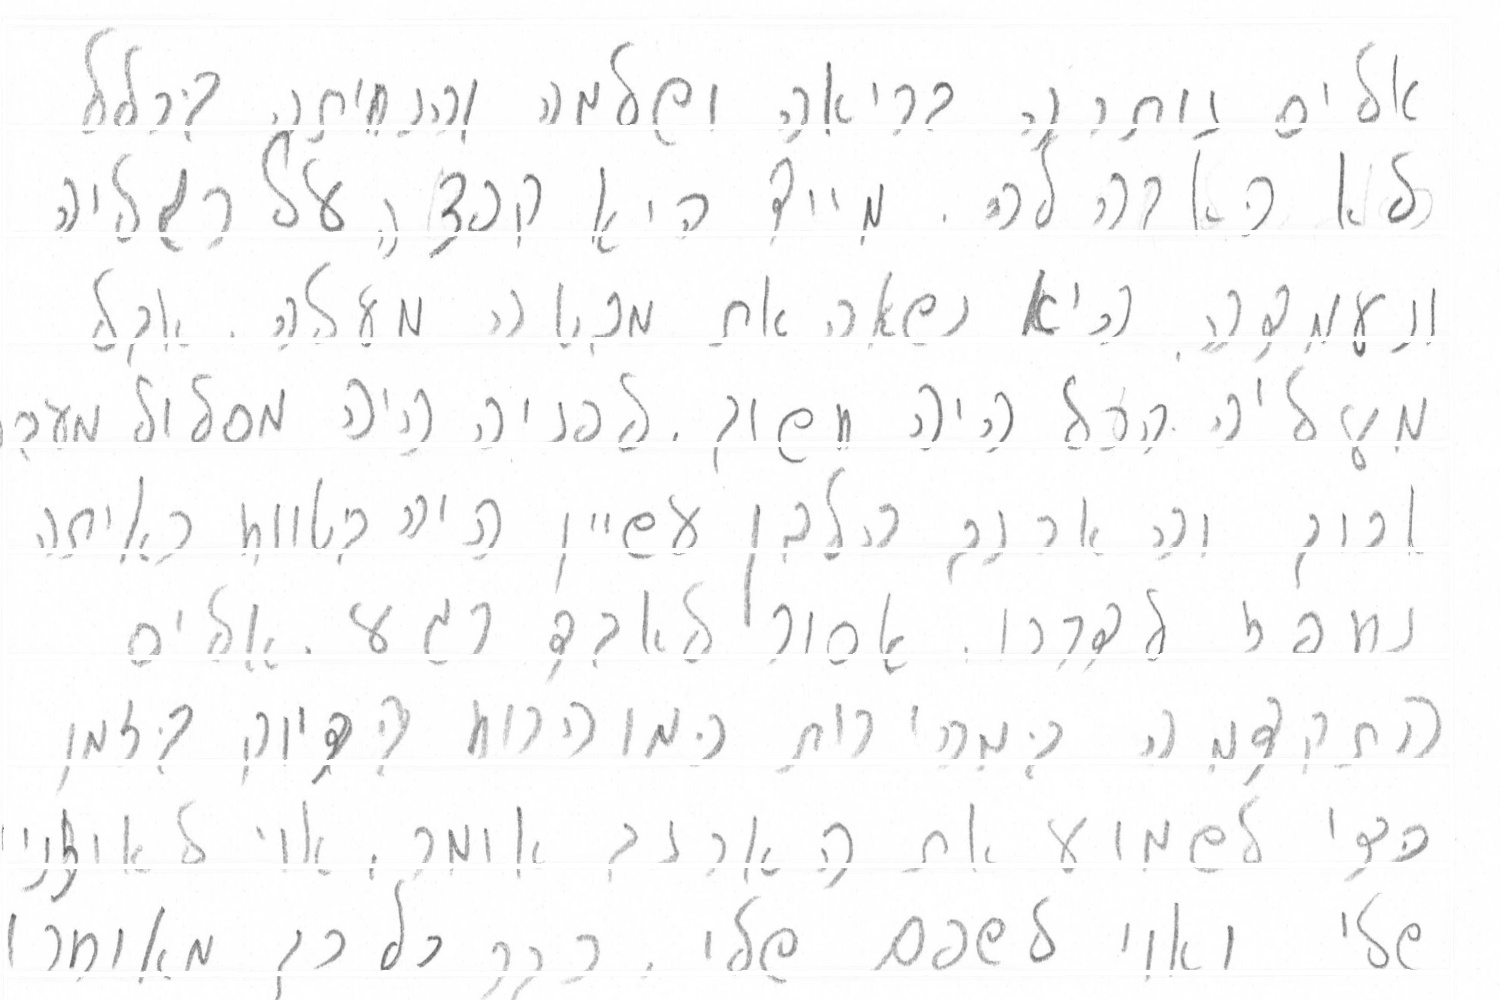 אליס נותרה בריאה ושלמה והנחיתה בכלל
לא כאבה לה. מייד היא קפצה על רגליה
ונעמדה, היא נשאה את מבטה מעלה. אבל
מעליה הכל היה חשוך. לפניה היה מסלול מעבר
ארוך וה ארנב הלבן עשיין היה בטווח ראיתה
נחפז לדרכו. אסור לאבד רגע. אליס
התקדמה במהירות כמו הרוח בדיוק בזמן
כדי לשמוע את הארנב אומר, אוי לאוזני
שלי ואוי לשפם שלי. כבר כל כך מאוחר!